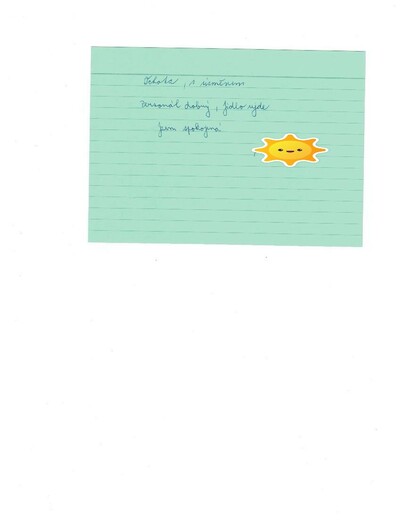 Ochota, s úsměvem
Personál dobrý, jídlo ujde
Jsem spokojná